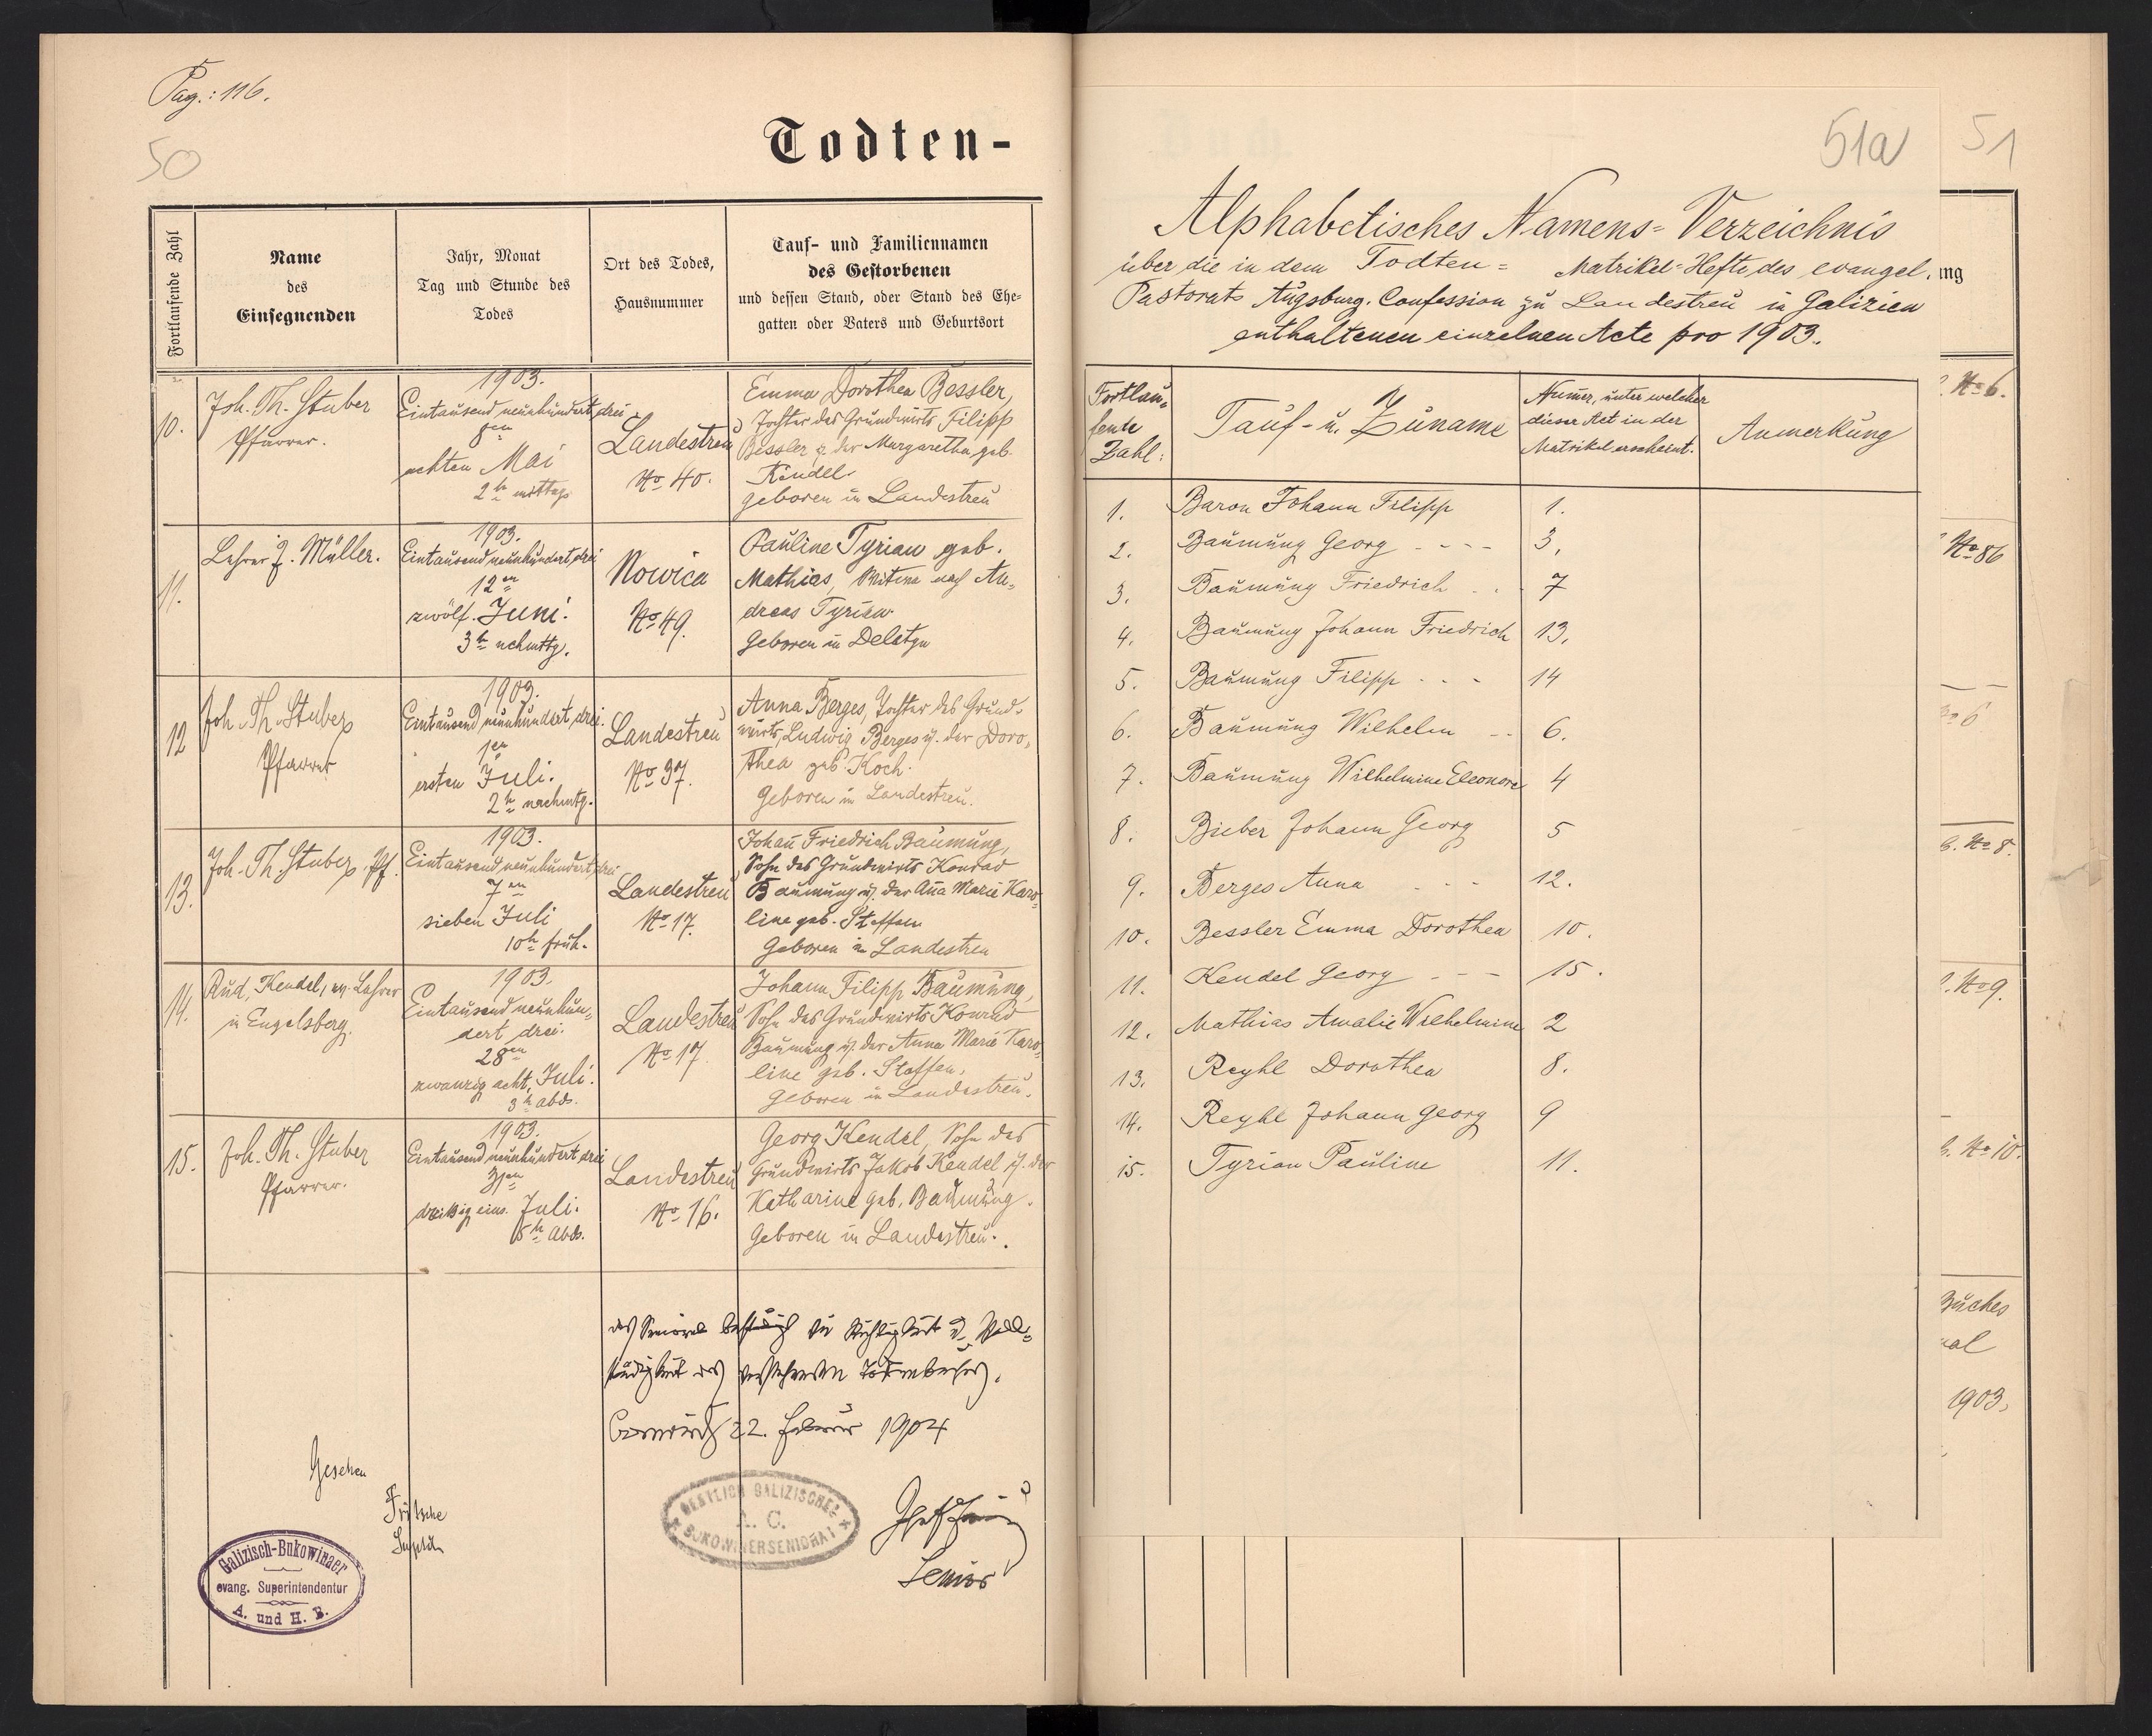 Pag.: 116.
50
Todten-
Fortlaufende Zahl
Name
des
Einsegnenden
Jahr, Monat
Tag und Stunde des
Todes
Ort des Todes,
Hausnummer
Tauf- und Familiennamen
des Gestorbenen
und dessen Stand, oder Stand des Ehe-
gatten oder Vaters und Geburtsort
10.
Joh. Th. Stuber
Pfarrer.
1903.
Eintausend neunhundert drei
8en
achten Mai
2h mittags
Landestreu
No 40.
Emma Dorothea Bessler,
Tochter des Grundwirts Filipp
Bessler u. der Margaretha geb.
Kendel
geboren in Landestreu
11.
Lehrer J. Müller.
1903.
Eintausend neunhundert drei
12en
zwölf. Juni.
3h nchmttg.
Nowica
No 49.
Pauline Tyrian geb.
Mathias, Witwe nach An-
dreas Tyrian
Geboren in Delatyn
12
Joh. Th. Stuber
Pfarrer
1903.
Eintausend neunhundert drei.
1en
ersten Juli.
2h nachmtg.
Landestreu
No 37.
Anna Berges, Tochter des Grund-
wirts Ludwig Berges u. der Doro-
thea geb. Koch.
Geboren in Landestreu.
13.
Joh. Th. Stuber, Pf.
1903.
Eintausend neunhundert drei
7en
sieben Juli
10h früh.
Landestreu
No 17.
Johan̄ Friedrich Baumung,
Sohn des Grundwirts Konrad
Baumung u. der An̄a Marie Karo-
line geb. Steffen
Geboren in Landestreu
14.
Rud. Kendel, ev. Lehrer
in Engelsberg.
1903.
Eintausend neunhun-
dert drei.
28en
zwanzig acht, Juli.
3h abds.
Landestreu
No 17.
Johann Filipp Baumung,
Sohn des Grundwirts Konrad
Baumung u. der Anna Marie Karo-
line geb. Steffen.
Geboren in Landestreu.
15.
Joh. Th. Stuber
Pfarrer.
1903.
Eintausend neunhundert drei
31en
dreißig eins. Juli.
5h Abds.
Landestreu
No 16.
Georg Kendel, Sohn des
Grundwirts Jakob Kendel u. der
Katharine geb. Baumung.
Geboren in Landestreu.
Das Seniorat bestätigt die Richtigkeit u. Voll-
ständigkeit des Totenbuches.
22. Februar 1904
Gesehen
Fritsche
Galizisch-Bukowinaer
evang. Superintendentur
A. und H. B.
OESTLICH GALIZISCHES
A. C.
BUKOWINERSENIORAT
Senior
51a
51
Alphabetisches Namens-Verzeichnis
über die in dem Todten- Matrikel-Hefte des evangel.
Pastorats Augsburg. Confession zu Landestreu in Galizien
enthaltenen einzelnen Acte pro 1903.
Fortlau-
fende
Zahl:
Tauf- u. Zuname
Numer, unter welcher
dieser Act in der
Matrikel erscheint.
Anmerkung
1. Baron Johann Filipp 1.
2. Baumung Georg - - - - 3.
3. Baumung Friedrich . . - 7
4. Baumung Johann Friedrich 13.
5. Baumung Filipp - - - 14
6. Baumung Wilhelm - - 6.
7. Baumung Wilhelmine Eleonore 4
8. Bieber Johann Georg 5
9. Berges Anna - - - 12.
10. Bessler Emma Dorothea 10.
11. Kendel Georg - - - 15.
12. Mathias Amalie Wilhelmine 2
13. Reyhl Dorothea 8.
14. Reyhl Johann Georg 9
15. Tyrian Pauline 11.
ng
No 6.
No 86
No 8.
No 9.
No 10.
Buches
1903.